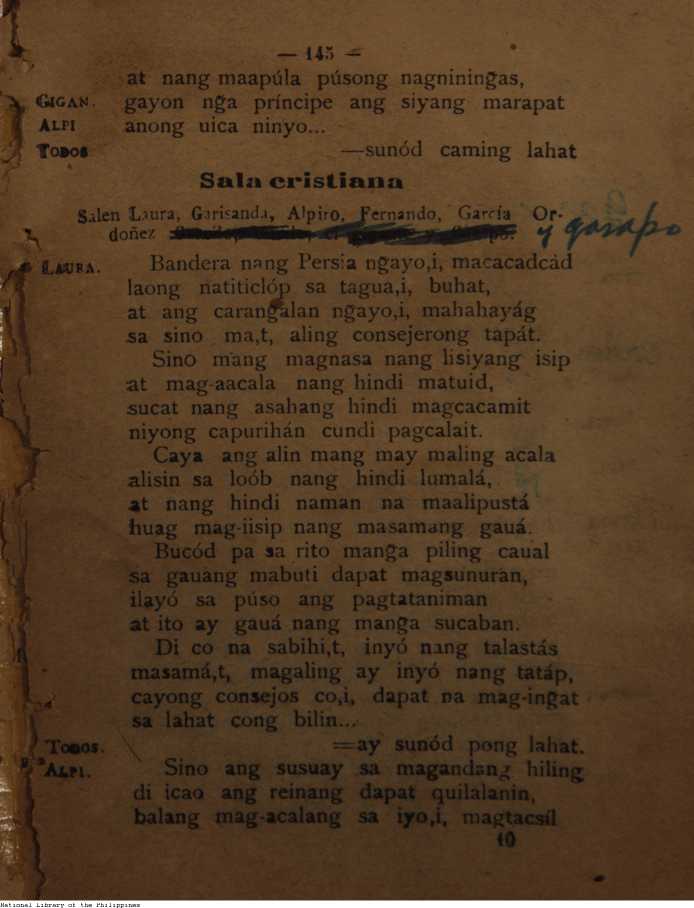 — 145 —
at nang maapúla púsong nagniningas,
GIGAN. gayon ng̃a príncipe ang siyang marapat
ALPI anong uica ninyo...
TODOS —sunód caming lahat
Sala cristiana
Salen Laura, Garisanda, Alpiro, Fernando, García Or-
doñez y garapo
LAURA. Bandera nang Persia ng̃ayo,i, macacadcàd
laong natiticlóp sa tagua,i, buhat,
at ang carang̃alan ng̃ayo,i, mahahayág
sa sino ma,t, aling consejerong tapát.
Sino mang magnasa nang lisiyang isip
at mag-aacala nang hindi matuid,
sucat nang asahang hindi magcacamit
niyong capurihán cundi pagcalait.
Caya ang alin mang may maling acala
alisin sa loób nang hindi lumalá,
at nang hindi naman na maalipustá
huag mag-iisip nang masamang gauá.
Bucód pa sa rito mang̃a piling caual
sa gauang mabuti dapat magsunuran,
ilayó sa púso ang pagtataniman
at ito ay gauá nang mang̃a sucaban.
Di co na sabihi,t, inyó nang talastás
masamá,t, magaling ay inyó nang tatáp,
cayong consejos co,i, dapat na mag-ing̃at
sa lahat cong bilin...
TODOS. =ay sunód pong lahat.
ALPI. Sino ang susuay sa magandang hiling
di icao ang reinang dapat quilalanin,
balang mag-acalang sa iyo,i, magtacsíl
10
National Library of the Philippines